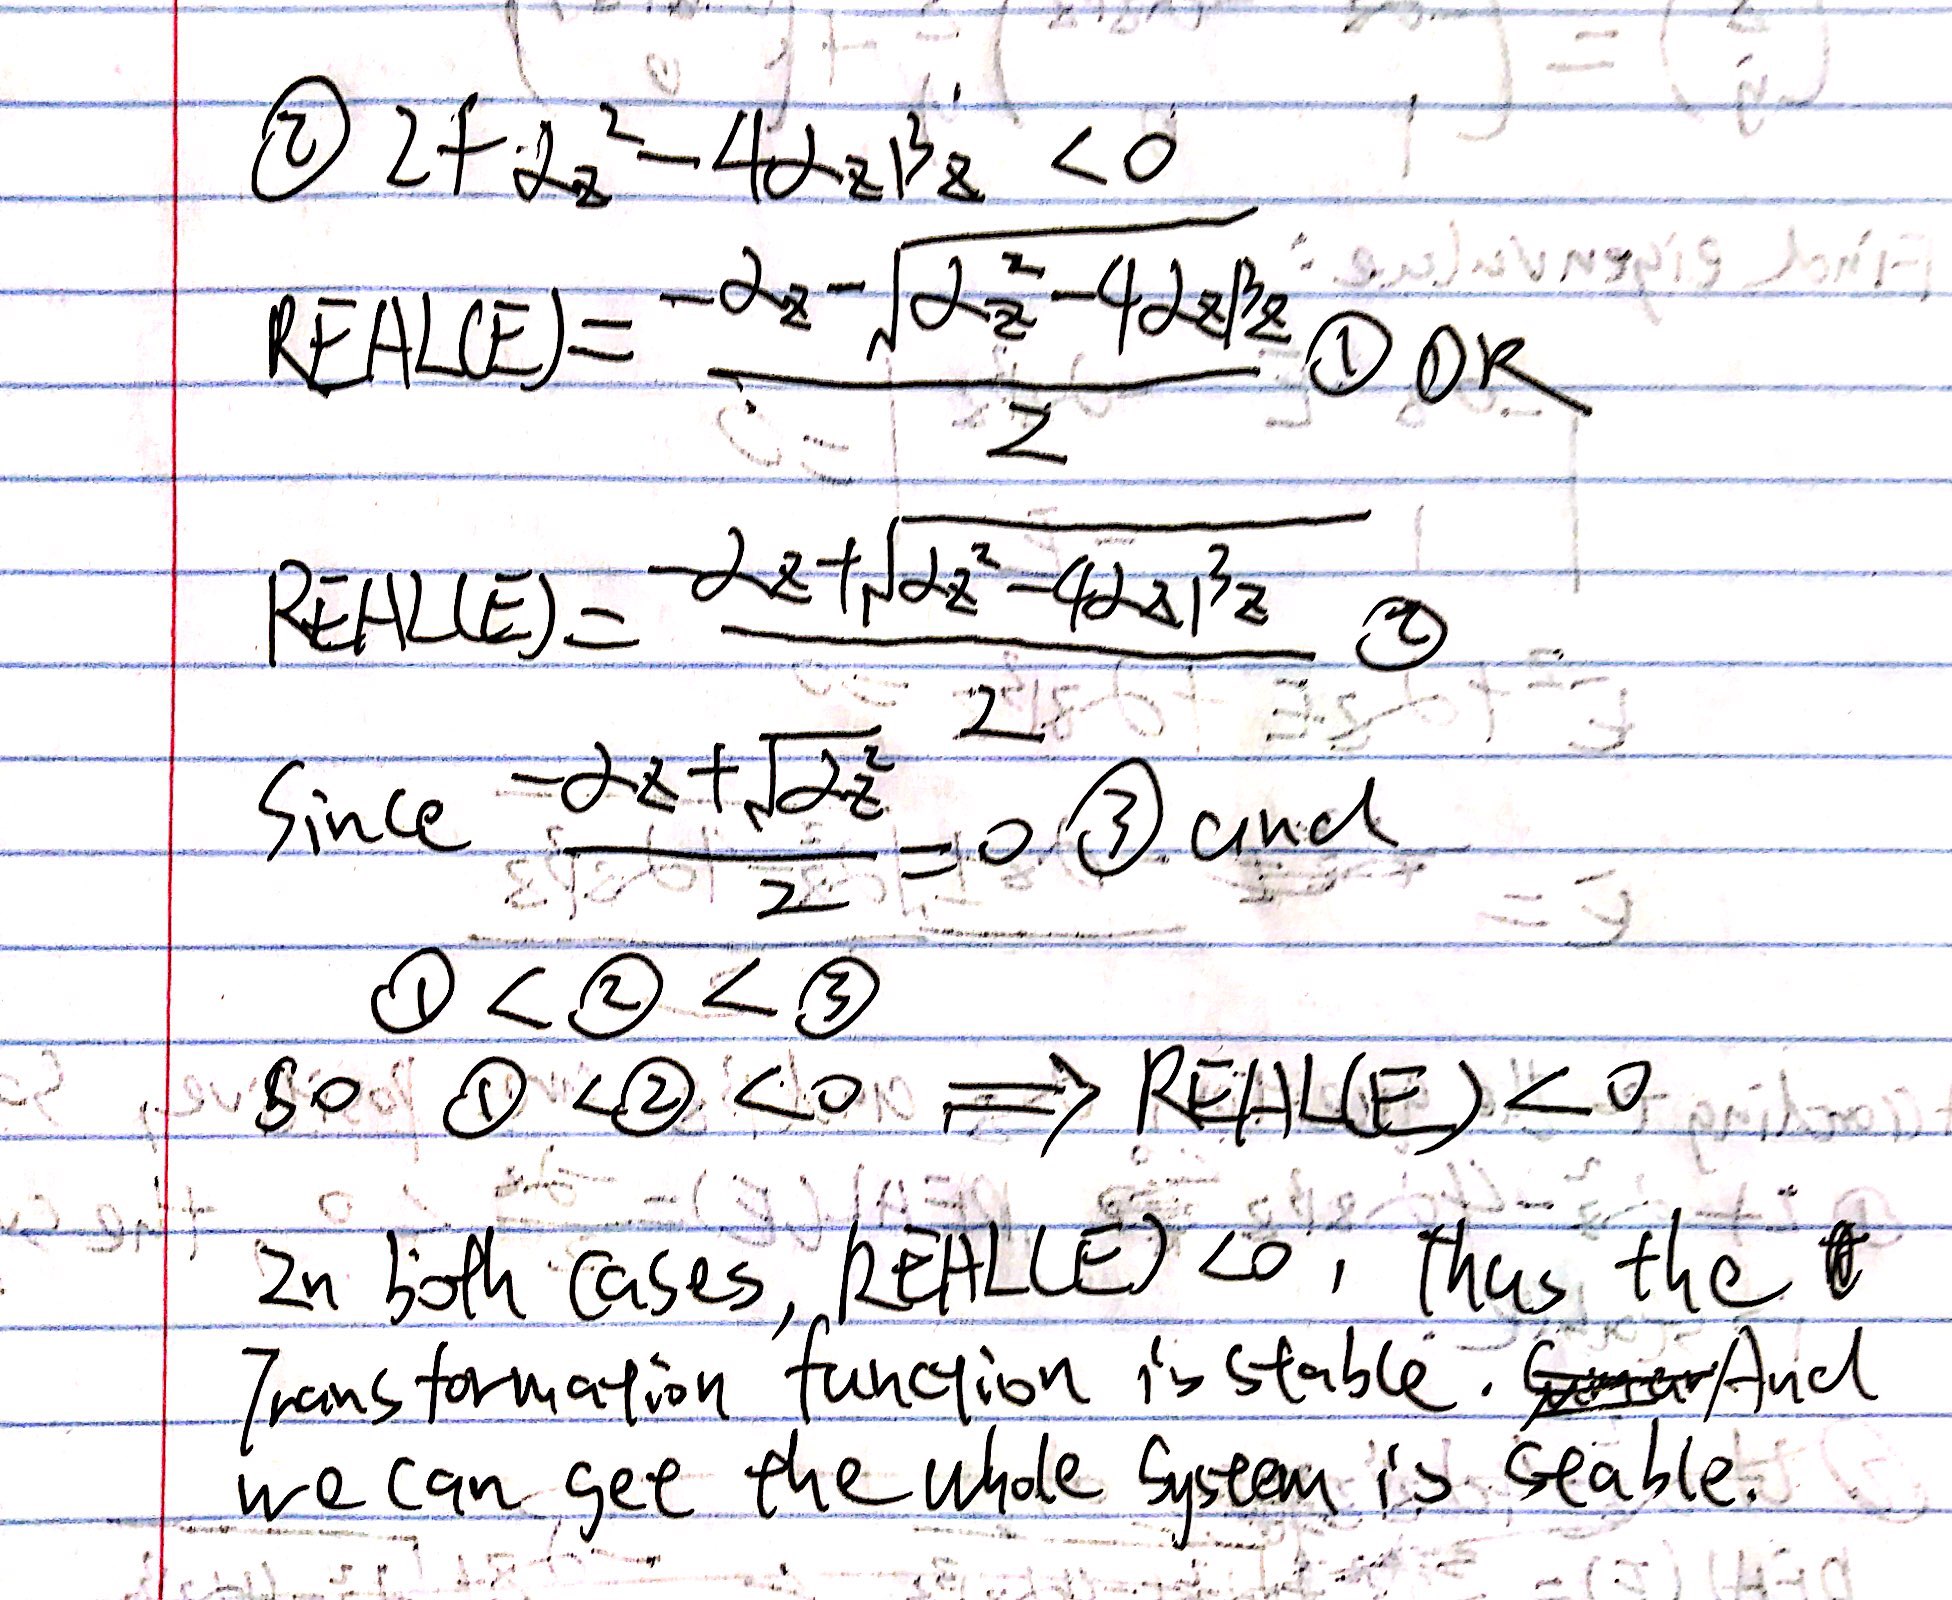 ② If α_z² - 4α_zβ_z < 0
REAL(E) = (-α_z - √(α_z² - 4α_zβ_z)) / 2 ① OR
REAL(E) = (-α_z + √(α_z² - 4α_zβ_z)) / 2 ②
Since (-α_z + √(α_z²)) / 2 = 0 ③ and
① < ② < ③
So ① < ② < 0 ⟹ REAL(E) < 0
In both cases, REAL(E) < 0, thus the
Transformation function is stable. And
we can see the whole system is stable.